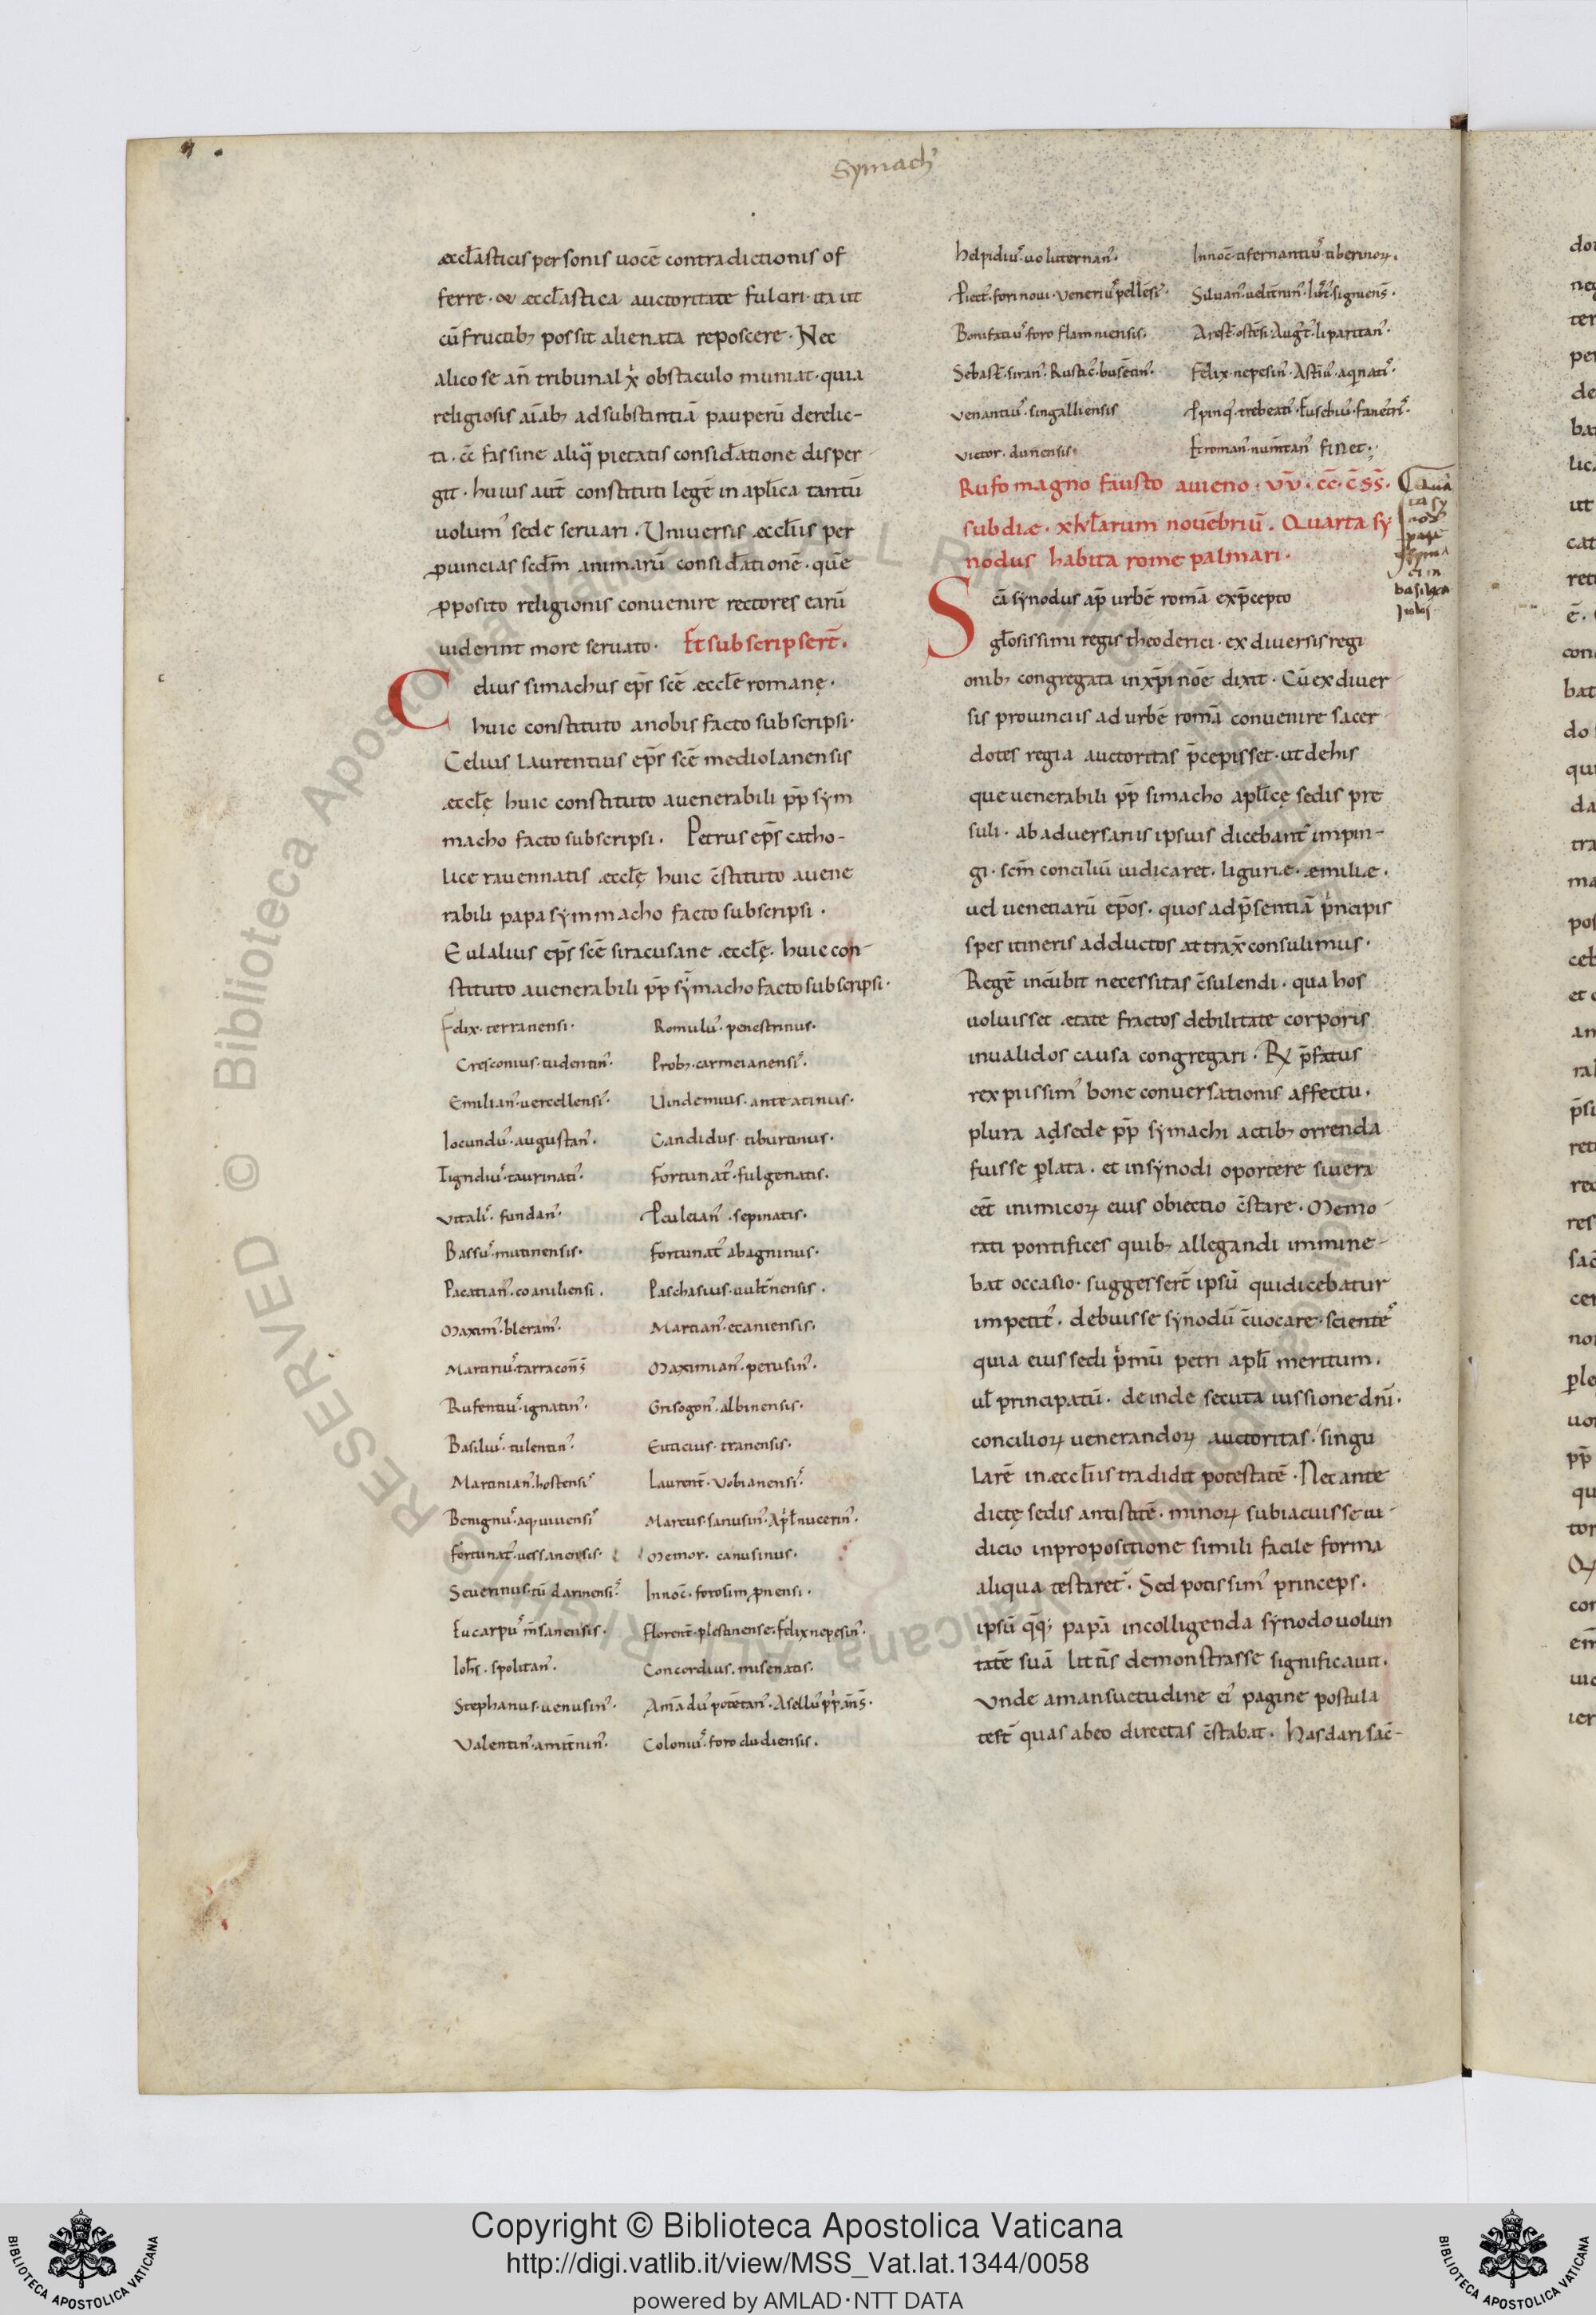 Symach᾿
æccl̄asticis personis uocē contradictionis of
ferre · & æccl̄astica auctoritate fulciri · ita ut
cū fructib; possit alienata reposcere · Nec
alico se an̄ tribunal obstaculo muniat · quia
religiosis aīab; ad substantiā pauperū derelic-
ta · fas sine pietatis consid̄atione disper
git · huius aut̄ constituti legē in apl̄ica tantū
uolum᾿ sede seruari · Uniuersis æccl̄iis per
ꝓuincias scdm̄ animarū consid̄ationē · quē
ꝓposito religionis conuenire rectores earū
uiderint more seruato · Et subscripser̄t ·
Celius simachus ep̄s scē æccl̄e romanę ·
huic constituto a nobis facto subscripsi ·
Celius Laurentius ep̄s scē mediolanensis
æcclę̄ huic constituto a uenerabili pp̄ sym
macho facto subscripsi · Petrus ep̄s catho-
lice rauennatis æcclę̄ huic c̄stituto a uene
rabili papa symmacho facto subscripsi ·
Eulalius ep̄s scē siracusane æcclę̄ · huic con-
stituto a uenerabili pp̄ symacho facto subscripsi ·
Felix · terranensi · Romulu᾿ · penestrinus ·
Cresconius · tudentin᾿ · Prob; · carmeianensi᾿ ·
Emilian᾿ · uercellensi᾿ · Uindemius · anteatinus ·
Iocundu᾿ · augustan᾿ · Candidus · tiburtinus ·
Tigridiu᾿ · taurinati᾿ · Fortunat᾿ · fulgenatis ·
Vitali᾿ · fundan᾿ · sepinatis ·
Bassu᾿ · mutinensis · Fortunat᾿ abagninus ·
Pacatian᾿ · coaniliensi · Paschasius · uult̄nensis ·
Maxim᾿ · bleran᾿ · Martian᾿ · ecaniensis ·
Martiriu᾿ · tarracon̄s Maximian᾿ · perusin᾿ ·
Rufentiu᾿ · ignatin᾿ · Grisogon᾿ · albinensis ·
Basiliu᾿ · tulentin᾿ · Euticius · tranensis ·
Martinian᾿ · hostensi᾿ Laurent̄ · uobianensi᾿ ·
Benignu᾿ · aq; uiuensi᾿ Marcus · sanusin᾿ · nucerin᾿ ·
Fortunat᾿ · uessanensis · Memor · canusinus ·
Seuerinus · tū darinensi᾿ · Innoc̄ · forosim ꝓnensi ·
Eucarpu᾿ m̄sanensis · Florent̄ · plestinense · felix nepesin᾿ ·
Ioh̄s · spolitan᾿ · Concordius · misenatis ·
Stephanus · uenusin᾿ · Amādu᾿ potētan᾿ · Asellu᾿
Valentin᾿ · amit̄nin᾿ · Coloniu᾿ · foro dudiensis ·
helpidiu᾿ · uoluternan᾿ · Innoc̄ · tifernantiu᾿ · tiberinoꝝ ·
fori noui · Veneriu᾿ Siluan᾿ · signiens̄ ·
Bonifatiu᾿ foro flaminiensis · liparitan᾿ ·
Sebast̄ · siran᾿ · Rustic᾿ · busētin᾿ · Felix · nepesin᾿ · aq̄nati᾿ ·
Venantiu᾿ · singalliensis trebeati᾿ · Eusebiu᾿ · fanetri᾿ ·
Victor · dunensis · Et roman᾿ · finet ·
Rufo magno fausto auieno · vv̄ · cc̄ · c̄ss̄ ·
sub diæ · x kl̄arum nouēbriū · Quarta sy
nodus habita rome palmari ·
Scā synodus ap̄ urbē romā ex p̄cepto
gl̄osissimi regis theoderici · ex diuersis regi
onib; congregata in xp̄i noē dixit · Cū ex diuer
sis prouinciis ad urbē romā conuenire sacer
dotes regia auctoritas p̄cepisset · ut de his
que uenerabili pp̄ simacho apl̄icę sedis pre
suli · ab aduersariis ipsius dicebant᾿ impin-
gi · scm̄ conciliū iudicaret · liguriæ · æmiliæ ·
uel uenetiarū ep̄os · quos ad p̄sentiā prīncipis
spes itineris adductos attrax̄ consulimus ·
Regē incūbit necessitas c̄sulendi · qua hos
uoluisset ætate fractos debilitate corporis
inualidos causa congregari · p̄fatus
rex piissim᾿ bone conuersationis affectu ·
plura ad sede pp̄ symachi actib; orrenda
fuisse ꝑlata · et in synodi oportere si uera
eēt inimicoꝝ eius obiectio c̄stare · Memo
rati pontifices quib; allegandi immine-
bat occasio · suggesser̄t ipsū qui dicebatur
impetit᾿ · debuisse synodū c̄uocare · sciente᾿
quia eius sedi prīmū petri apl̄i meritum ·
ul̄ principatū · deinde secuta iussione dn̄i ·
concilioꝝ uenerandoꝝ auctoritas · singu
larē in æccl̄iis tradidit potestatē · Nec ante
dictę sedis antistitē · minoꝝ subiacuisse iu-
dicio in propositione simili facile forma
aliqua testaret᾿ · Sed potissim᾿ princeps ·
ipsū q̄q; papā in colligenda synodo uolun
tatē suā litt̄is demonstrasse significauit ·
Vnde a mansuetudine ei᾿ pagine postula
test̄ quas ab eo directas c̄stabat · has dari sac̄-